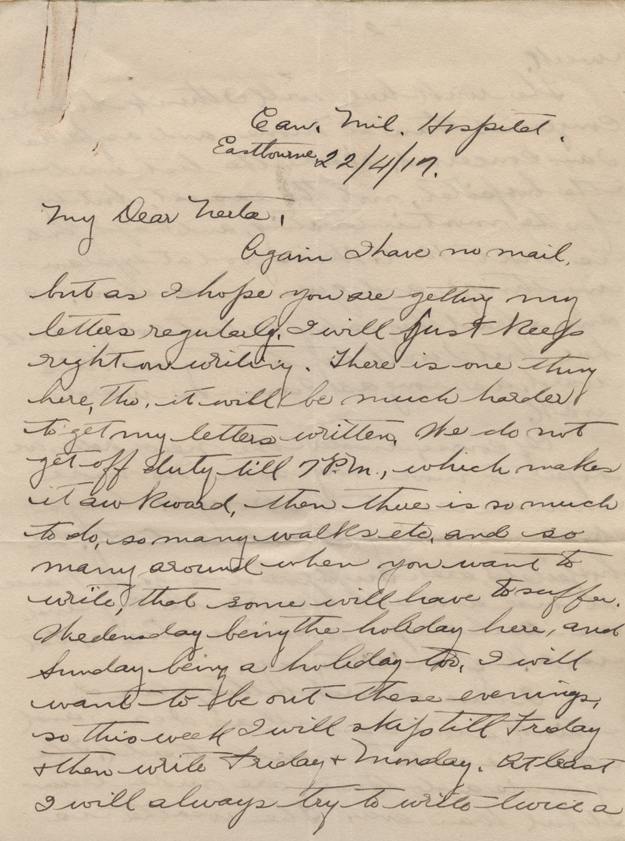 Can. Mil. Hospital.
Eastbourne, 22/4/17.
My Dear Neeta,
Again I have no mail,
but as I hope you are getting my
letters regularly, I will just keep
right on writing. There is one thing
here, tho, it will be much harder
to get my letters written. We do not
get off duty till 7 P.M., which makes
it awkward, then there is so much
to do, so many walks etc, and so
many around when you want to
write, that some will have to suffer.
Wedensday being the holiday here, and
Sunday being a holiday too, I will
want to be out these evenings,
so this week I will skip till Friday
+ then write Friday + Monday. At least
I will always try to write twice a